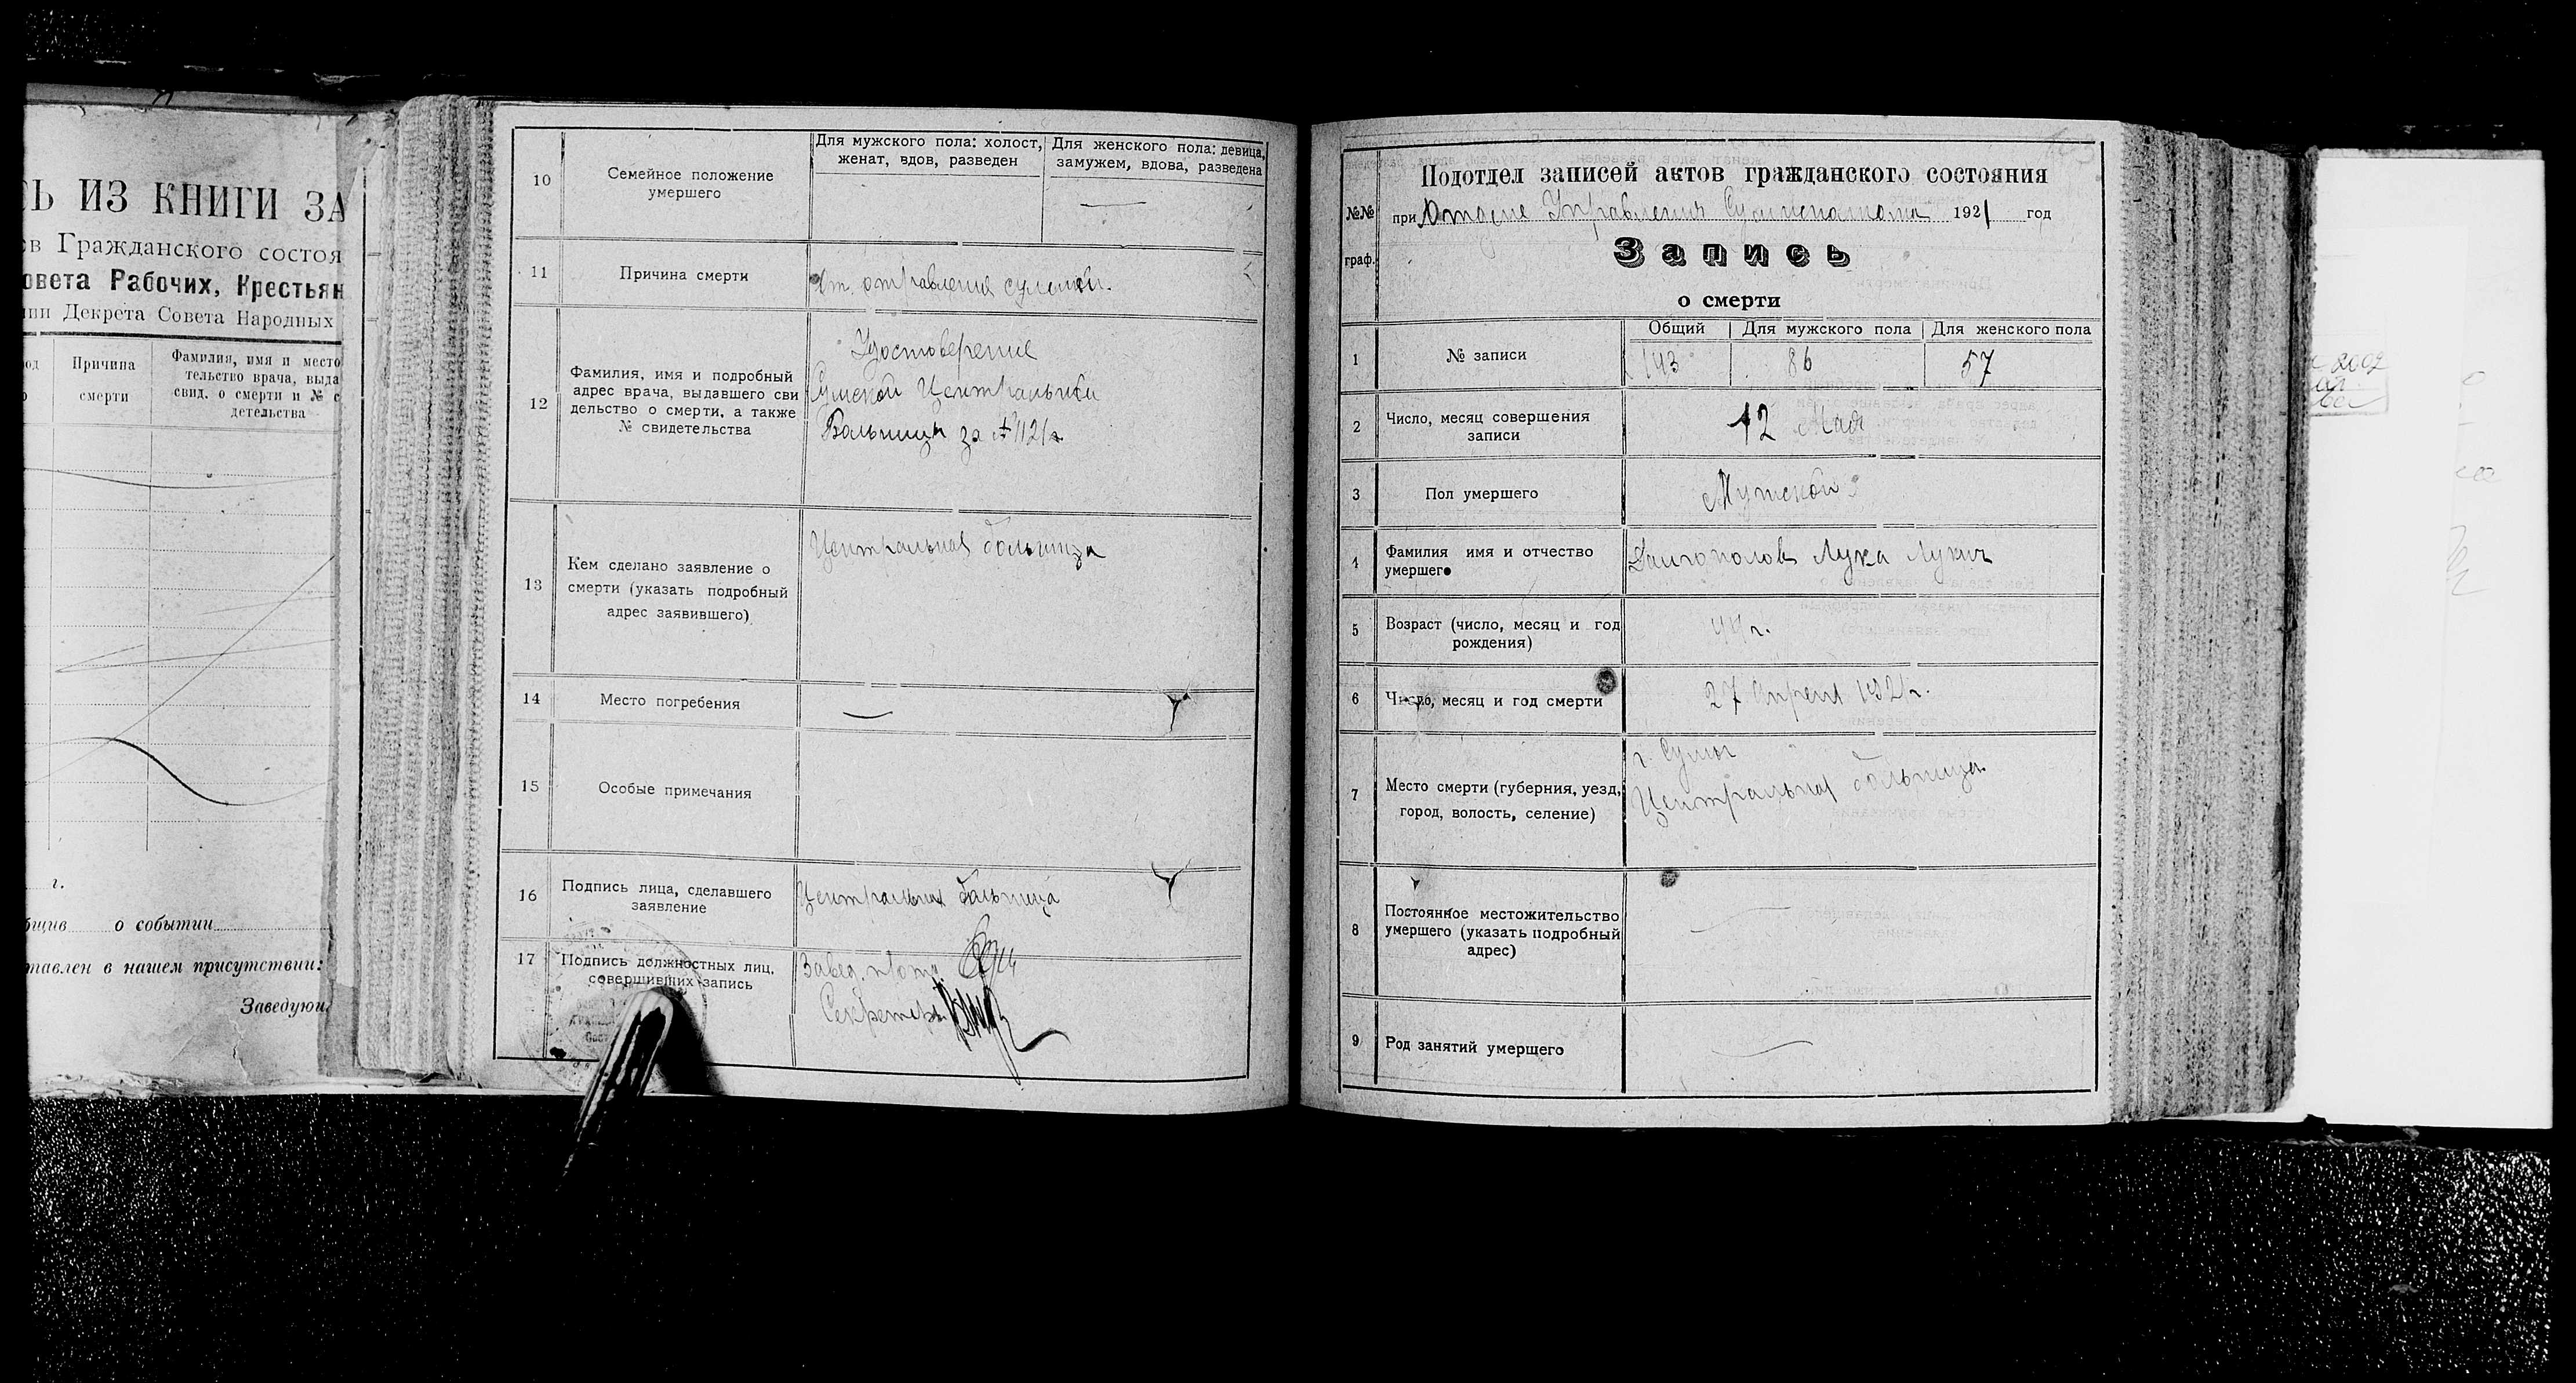 ИЗ КНИГИ ЗА
Гражданского состоя
овета Рабочих, Крестьян
Декрета Совета Народных
Причина
смерти
Фамилия, имя и место
тельство врача, выда
свид. о смерти и №
детельства
г.
о событии
тавлен в нашем присутствии:
Заведующ
10
Семейное положение
умершего
Для мужского пола: холост,
женат, вдов, разведен
Для женского пола: девица,
замужем, вдова, разведена
11
Причина смерти
От. отравления сулемой.
12
Фамилия, имя и подробный
адрес врача, выдавшего сви
дельство о смерти, а также
№ свидетельства
Удостоверение
Сумской Центральной
Больницы за №
13
Кем сделано заявление о
смерти (указать подробный
адрес заявившего)
Центральная больница
14
Место погребения
15
Особые примечания
16
Подпись лица, сделавшего
заявление
Центральная больница
17
Подпись должностных лиц,
совершивших запись
Завед. п/отд.
Секретарь
№№
граф.
Подотдел записей актов гражданского состояния
при Отделе Управления 1921 год
Запись
о смерти
1
№ записи
Общий
Для мужского пола
Для женского пола
143
86
57
2
Число, месяц совершения
записи
12 Мая
3
Пол умершего
Мужской
4
Фамилия имя и отчество
умершего
Долгополов Лука Лукич
5
Возраст (число, месяц и год
рождения)
44 г.
6
Число, месяц и год смерти
27 Апреля 1921 г.
7
Место смерти (губерния, уезд,
город, волость, селение)
г. Сумы
Центральная больница.
8
Постоянное местожительство
умершего (указать подробный
адрес)
9
Род занятий умершего